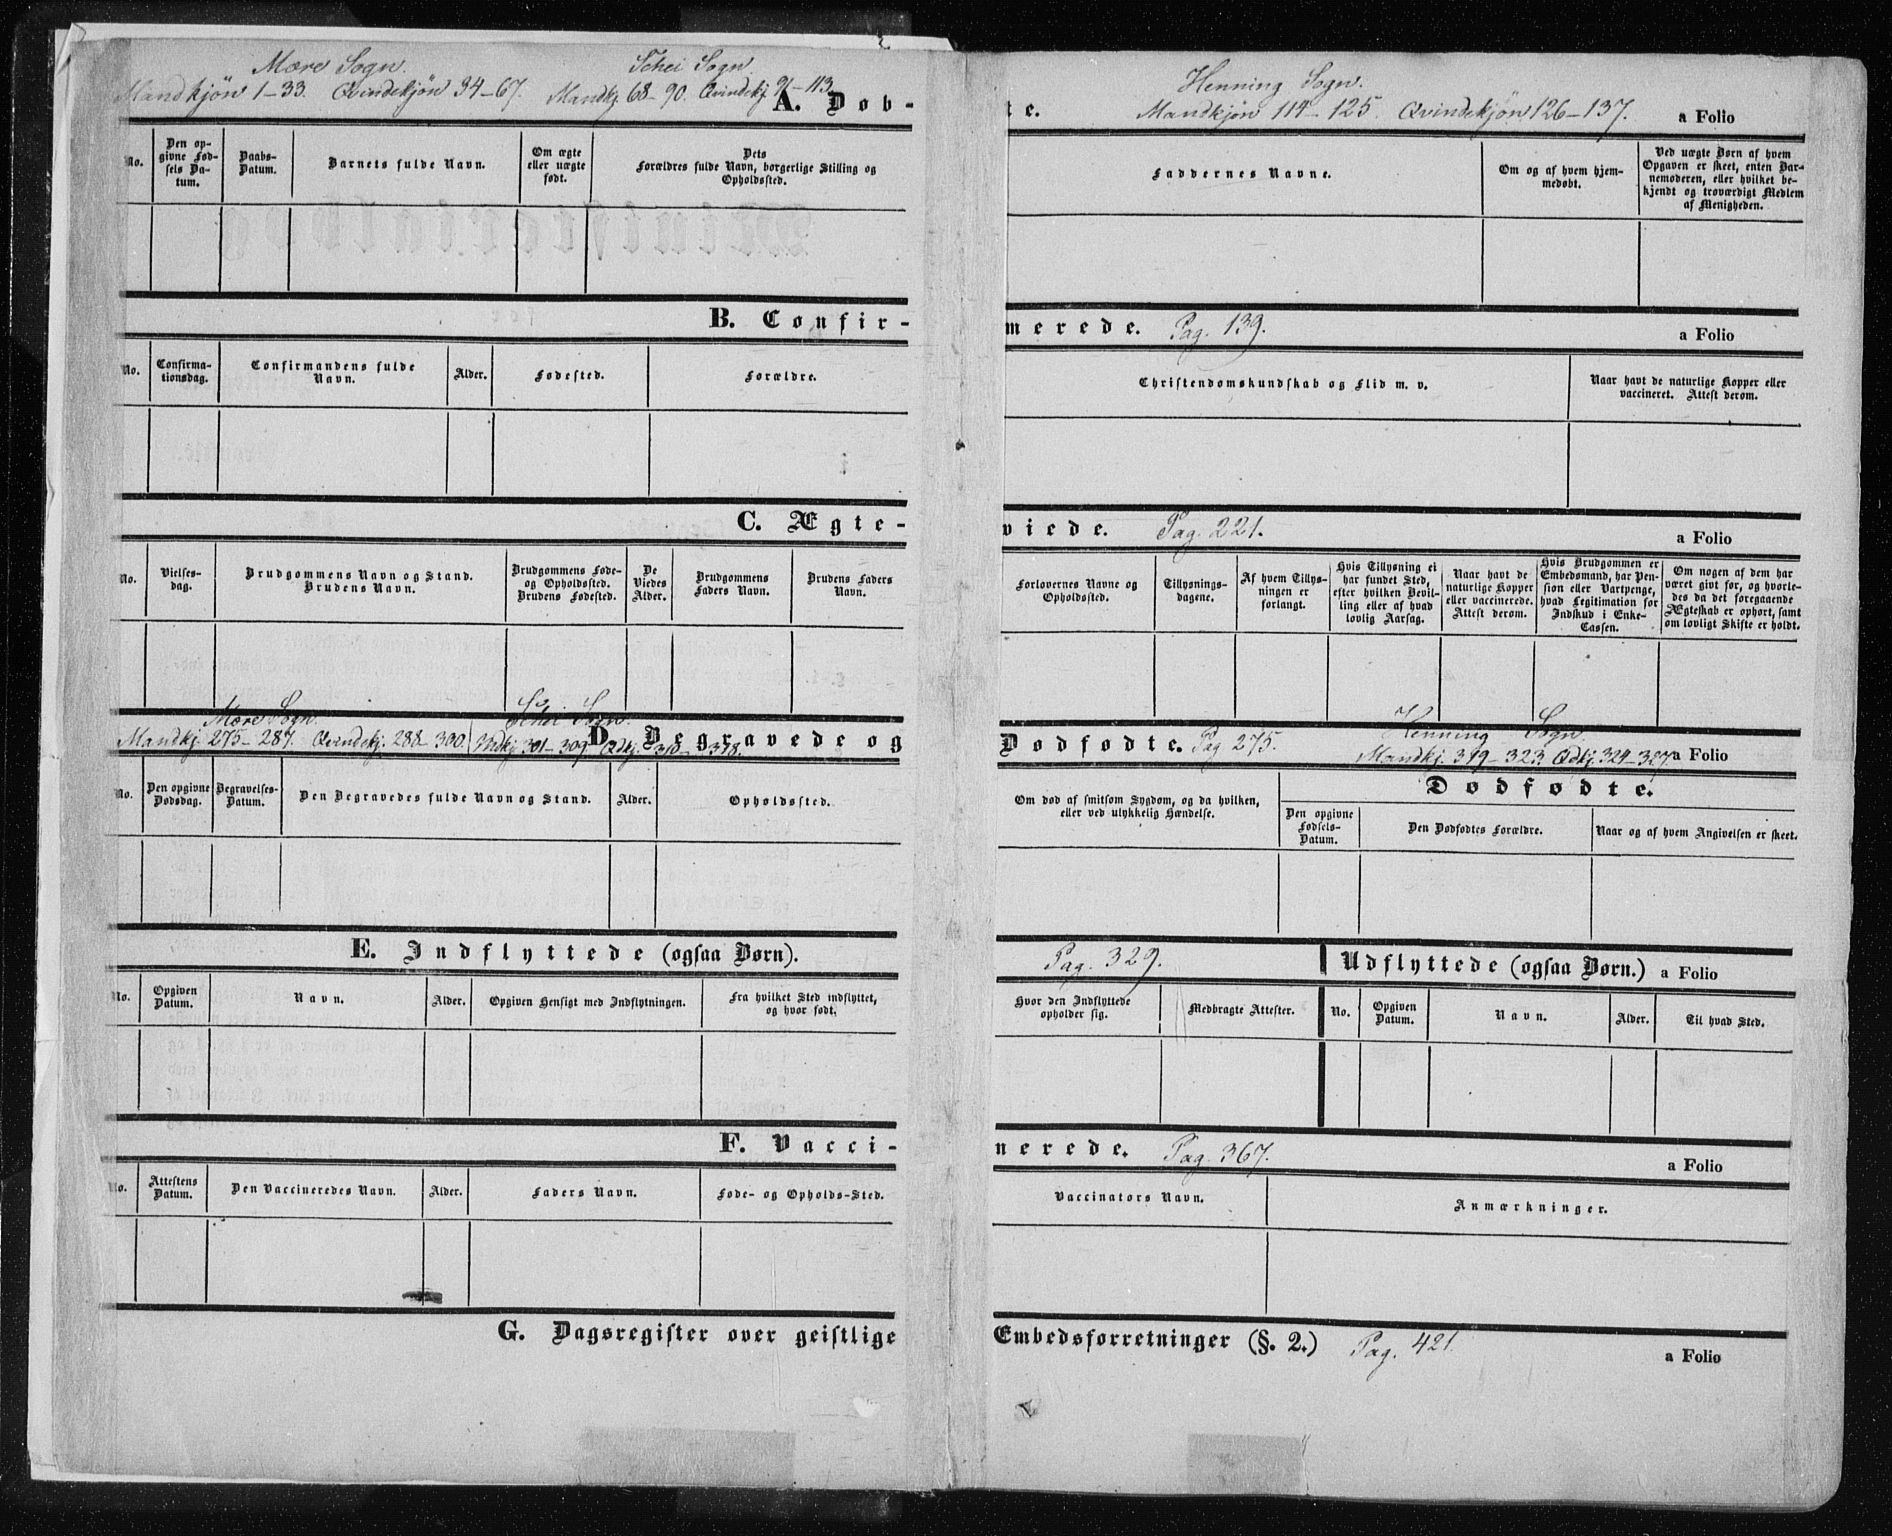 Mære Sogn. Schei Sogn.
Mandkjøn 1–33. Qvindekjøn 34–67. Mandkj. 68–90. Qvindekj. 91–113.
A. Døb-
No.
Den op-
givne Fød-
sels Da-
tum.
Daabs-
Datum.
Barnets fulde Navn.
Om ægte
eller uægte
født.
Dets
Forældres fulde Navn, borgerlige Stilling og
Opholdssted.
B. Confir-
No.
Confirma-
tionsdag.
Confirmandens fulde
Navn.
Alder.
Fødested.
Forældre.
C. Ægte-
No.
Vielses-
dag.
Brudgommens Navn og Stand.
Brudens Navn.
Brudgommens Føde-
og Opholdssted.
Brudens Fødested.
De
Viedes
Alder.
Brudgommens
Faders Navn.
Brudens Faders
Navn.
Mære Sogn. Schei Sogn.
Mandkj. 275–287. Qvindekj. 288–300. Mdkj. 301–309. Qdkj. 310–318.
D. Begravede og
No.
Den opgivne
Dødsdag.
Begravelses-
Datum.
Den Begravedes fulde Navn og Stand.
Alder.
Opholdssted.
E. Indflyttede (ogsaa Børn).
No.
Opgiven
Datum.
Navn.
Alder.
Opgiven Hensigt med Indflytningen.
Fra hvilket Sted indflyttet,
og hvor født.
F. Vacci-
No.
Attestens
Datum.
Den Vaccineredes Navn.
Alder.
Faders Navn.
Føde- og Opholds-Sted.
G. Dagsregister over geistlige
Henning Sogn.
te. Mandkjøn 114–125. Qvindekjøn 126–137. a Folio
Faddernes Navne.
Om og af hvem hjem-
medøbt.
Ved uægte Børn af hvem
Opgaven er skeet, enten Bar-
nemoderen, eller hvilket be-
kjendt og troværdigt Medlem
af Menigheden.
merede. Pag. 139. a Folio
Christendomskundskab og Flid m. v.
Naar havt de naturlige Kopper eller
vaccineret. Attest derom.
viede. Pag. 221. a Folio
Forlovernes Navne og
Opholdssted.
Tillysnings-
dagene.
Af hvem Tillys-
ningen er
forlangt.
Hvis Tillysning ei
har fundet Sted,
efter hvilken Bevil-
ling eller af hvad
lovlig Aarsag.
Naar havt de
naturlige Kopper
eller vaccinerede.
Attest derom.
Hvis Brudgommen er
Embedsmand, har Pen-
sion eller Vartpenge,
hvad Legitimation for
Indskud i Enke-
Cassen.
Om nogen af dem har
været gift før, og hvorle-
des da det foregaaende
Ægteskab er ophørt, samt
om lovligt Skifte er holdt.
Henning Sogn.
Dødfødte. Pag 275. Mandkj. 319–323 Qdkj. 324–327. a Folio
Om død af smitsom Sygdom, og da hvilken,
eller ved ulykkelig Hændelse.
Dødfødte.
Den opgivne
Fødsels-
Datum.
Den Dødfødtes Forældre.
Naar og af hvem Angivelsen er skeet.
Pag. 329. Udflyttede (ogsaa Børn.) a Folio
Hvor den Indflyttede
opholder sig.
Medbragte Attester.
No.
Opgiven
Datum.
Navn.
Alder.
Til hvad Sted.
nerede. Pag. 367. a Folio
Vaccinators Navn.
Anmærkninger.
Embedsforretninger (§. 2.) Pag. 421. a Folio